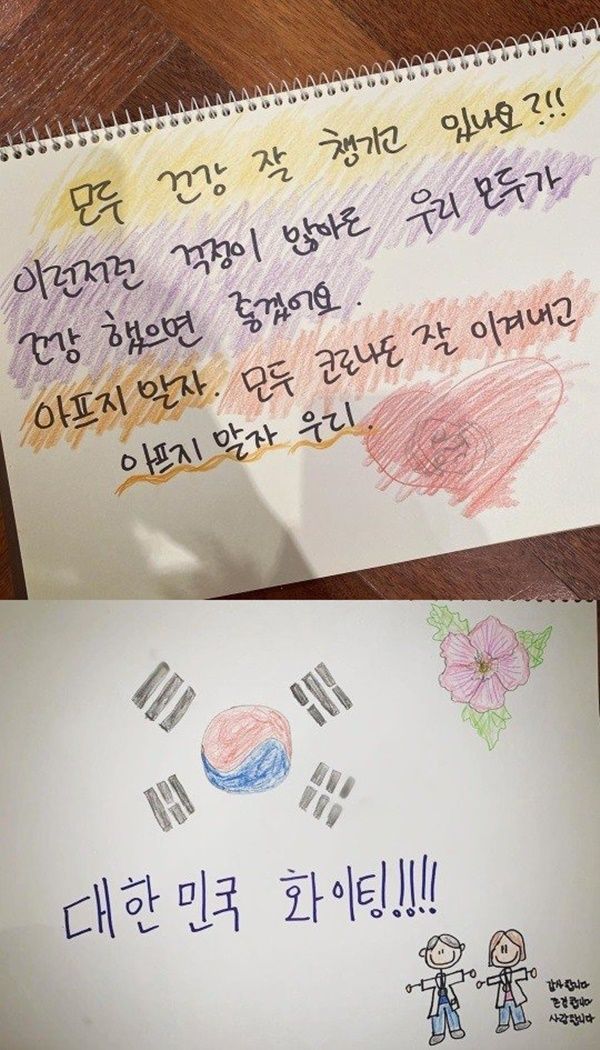 모두 건강 잘 챙기고 있나요?!!
이런저런 걱정이 많아로 우리 모두가
건강 했으면 좋겠어요.
아프지 말자. 모두 코로나도 잘 이겨내고
아프지 말자 우리.
대한민국 화이팅!!!!
감사합니다
존경합니다
사랑합니다